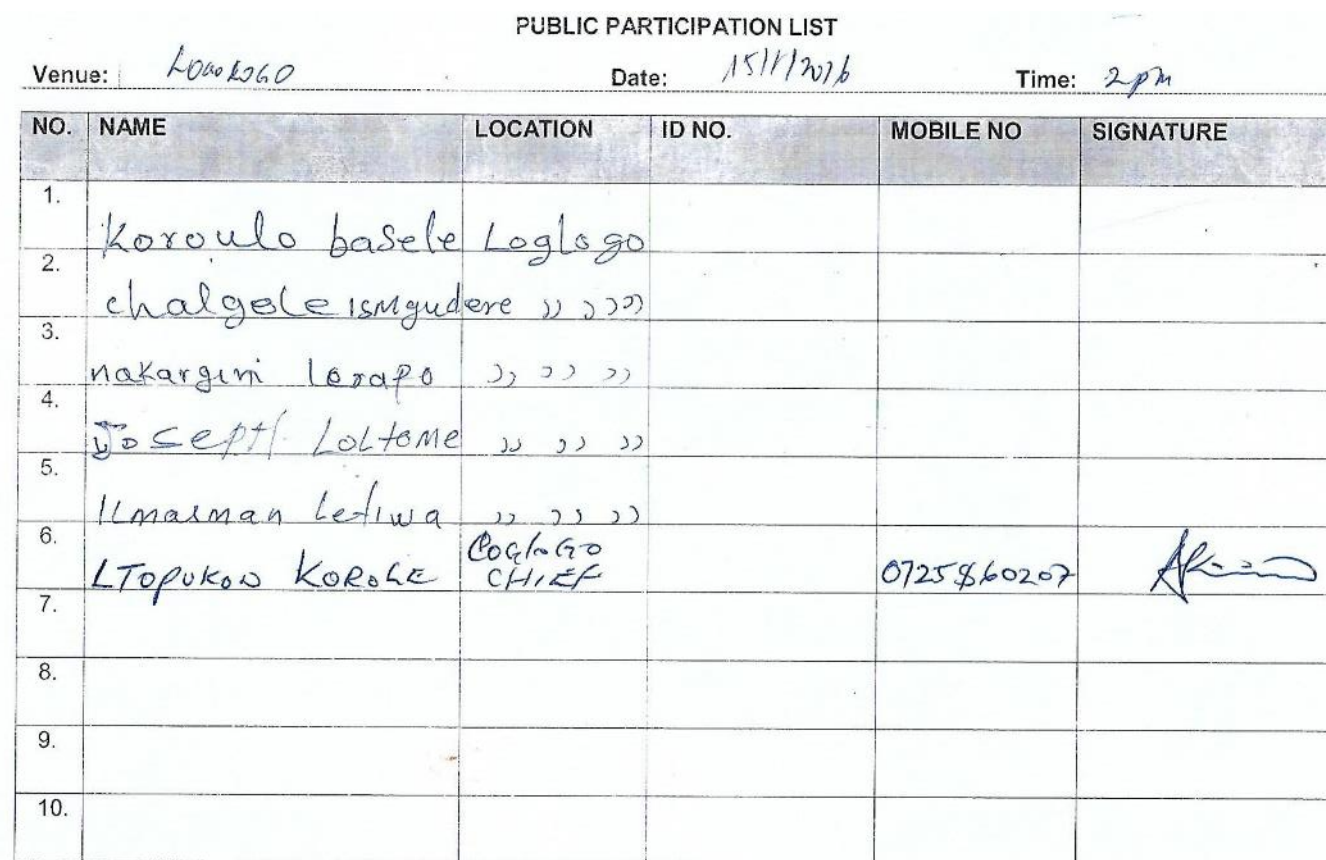 PUBLIC PARTICIPATION LIST
Venue: Date: 15/1/2016 Time: 2pm
NO. NAME LOCATION ID NO. MOBILE NO SIGNATURE
1. Koroulo basele Loglogo
2. chalgele ismgudere ,, ,, ,,
3. nakargini lerapo ,, ,, ,,
4. Joseph Loltome ,, ,, ,,
5. Ilmasman Letiwa ,, ,, ,,
6. LTOPUKON KOROLE LOGLOGO CHIEF 0725860207
7.
8.
9.
10.